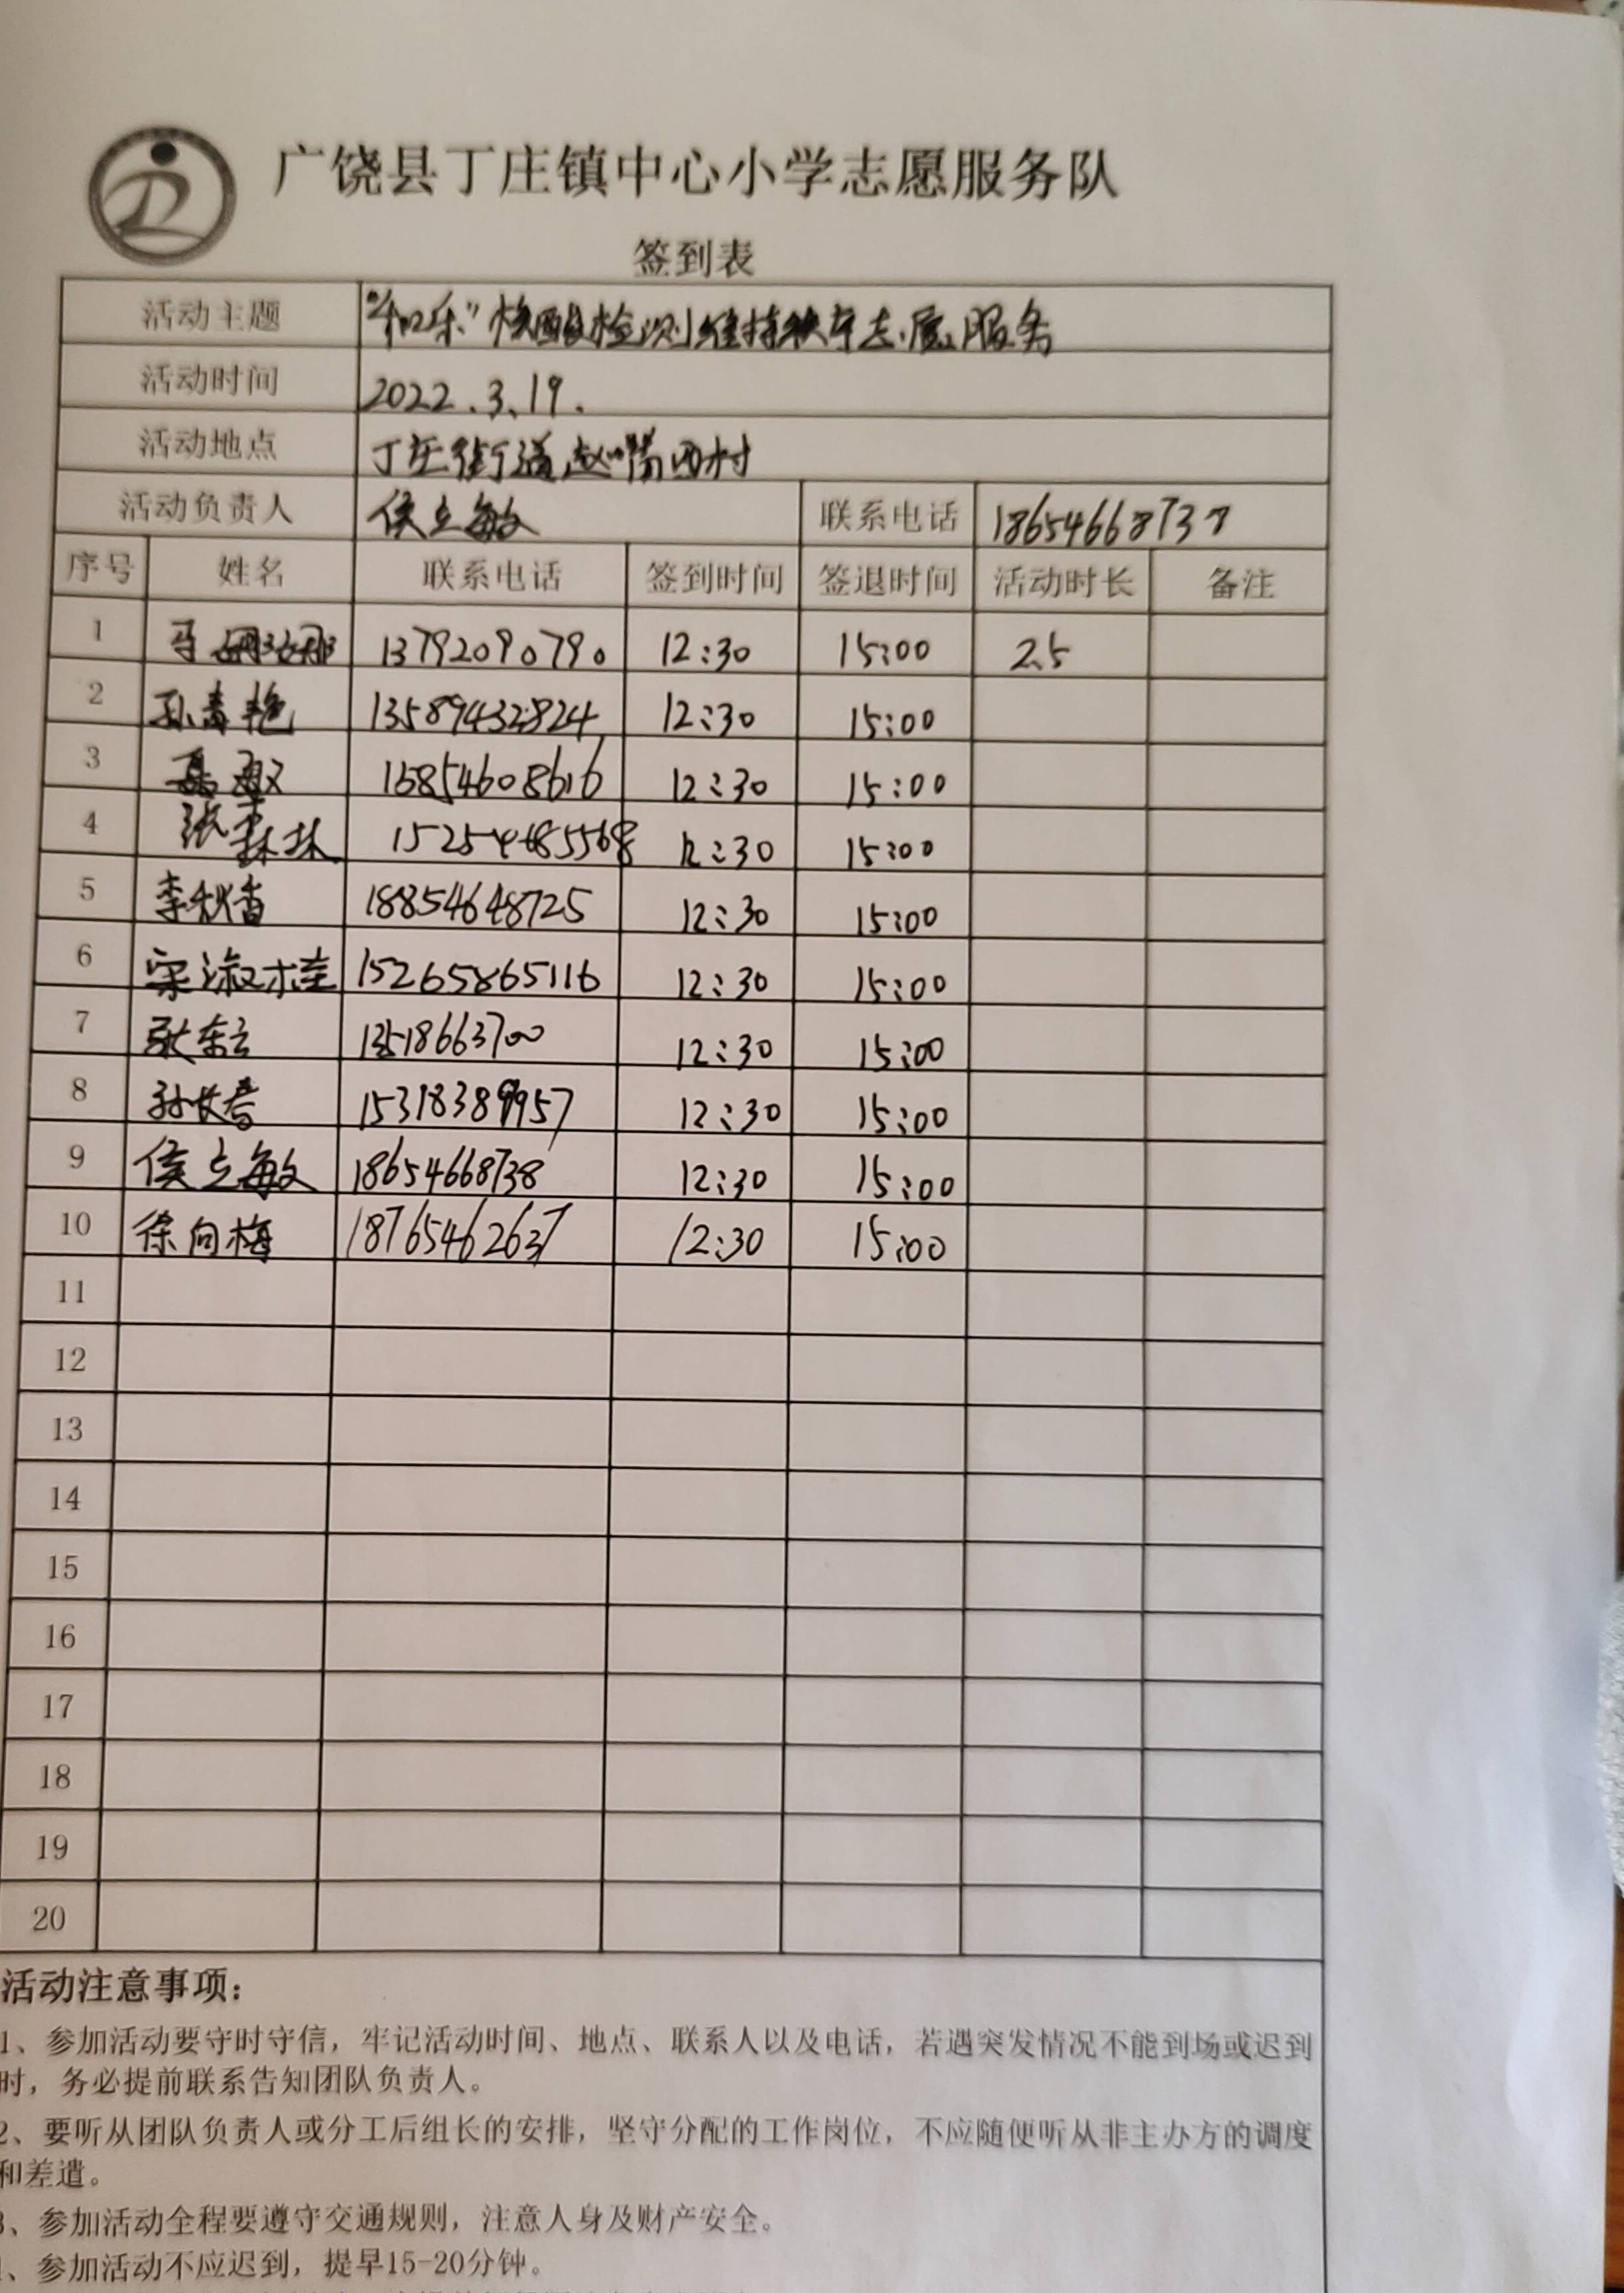 广饶县丁庄镇中心小学志愿服务队
签到表
活动主题 "和乐"核酸检测维持秩序志愿服务
活动时间 2022.3.19.
活动地点 丁庄街道赵嘴西村
活动负责人 侯立敏 联系电话 18654668738
序号 姓名 联系电话 签到时间 签退时间 活动时长 备注
1 马娜娜 13792090790 12:30 15:00 2.5
2 孙青艳 13589432824 12:30 15:00
3 敏 15854608616 12:30 15:00
4 张森林 15254685568 12:30 15:00
5 李秋香 18854648725 12:30 15:00
6 宋淑桂 15265865116 12:30 15:00
7 张东云 12:30 15:00
8 孙长春 15318389957 12:30 15:00
9 侯立敏 18654668738 12:30 15:00
10 徐向梅 18765462637 12:30 15:00
11
12
13
14
15
16
17
18
19
20
活动注意事项：
1、参加活动要守时守信，牢记活动时间、地点、联系人以及电话，若遇突发情况不能到场或迟到
时，务必提前联系告知团队负责人。
2、要听从团队负责人或分工后组长的安排，坚守分配的工作岗位，不应随便听从非主办方的调度
和差遣。
3、参加活动全程要遵守交通规则，注意人身及财产安全。
、参加活动不应迟到，提早15-20分钟。